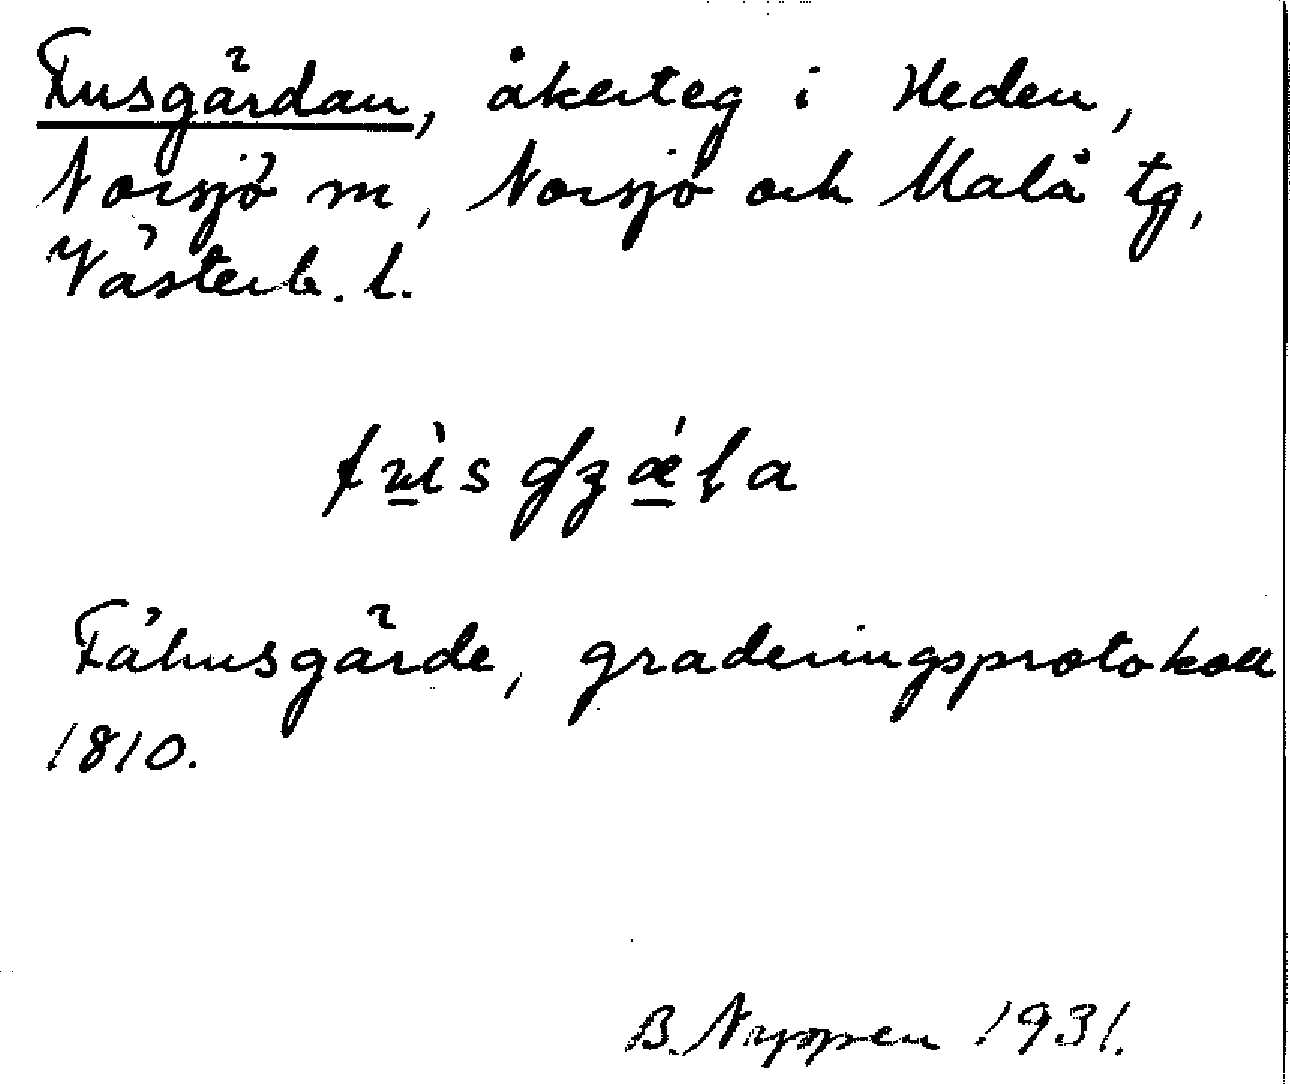 Fusgärdan, åkerteg i Heden,
Norsjö m, Norsjö och Malå tg,
Västerb. l.
Fähusgärde, graderingsprotokoll
1810.
B. Nyppen 1931.